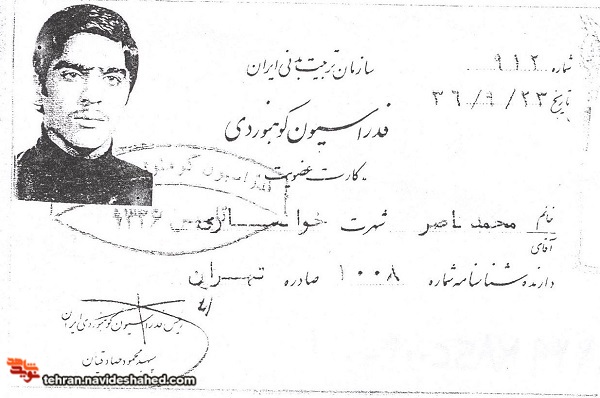 شماره ۹۱۲
سازمان تربیت بدنی ایران
تاریخ ۳۶/۹/۲۳
فدراسیون کوهنوردی
کارت عضویت
خانم
آقای محمد ناصر شهرت خوانساری
دارنده شناسنامه شماره ۱۰۰۸ صادره تهران
رئیس فدراسیون کوهنوردی ایران
tehran.navideshahed.com